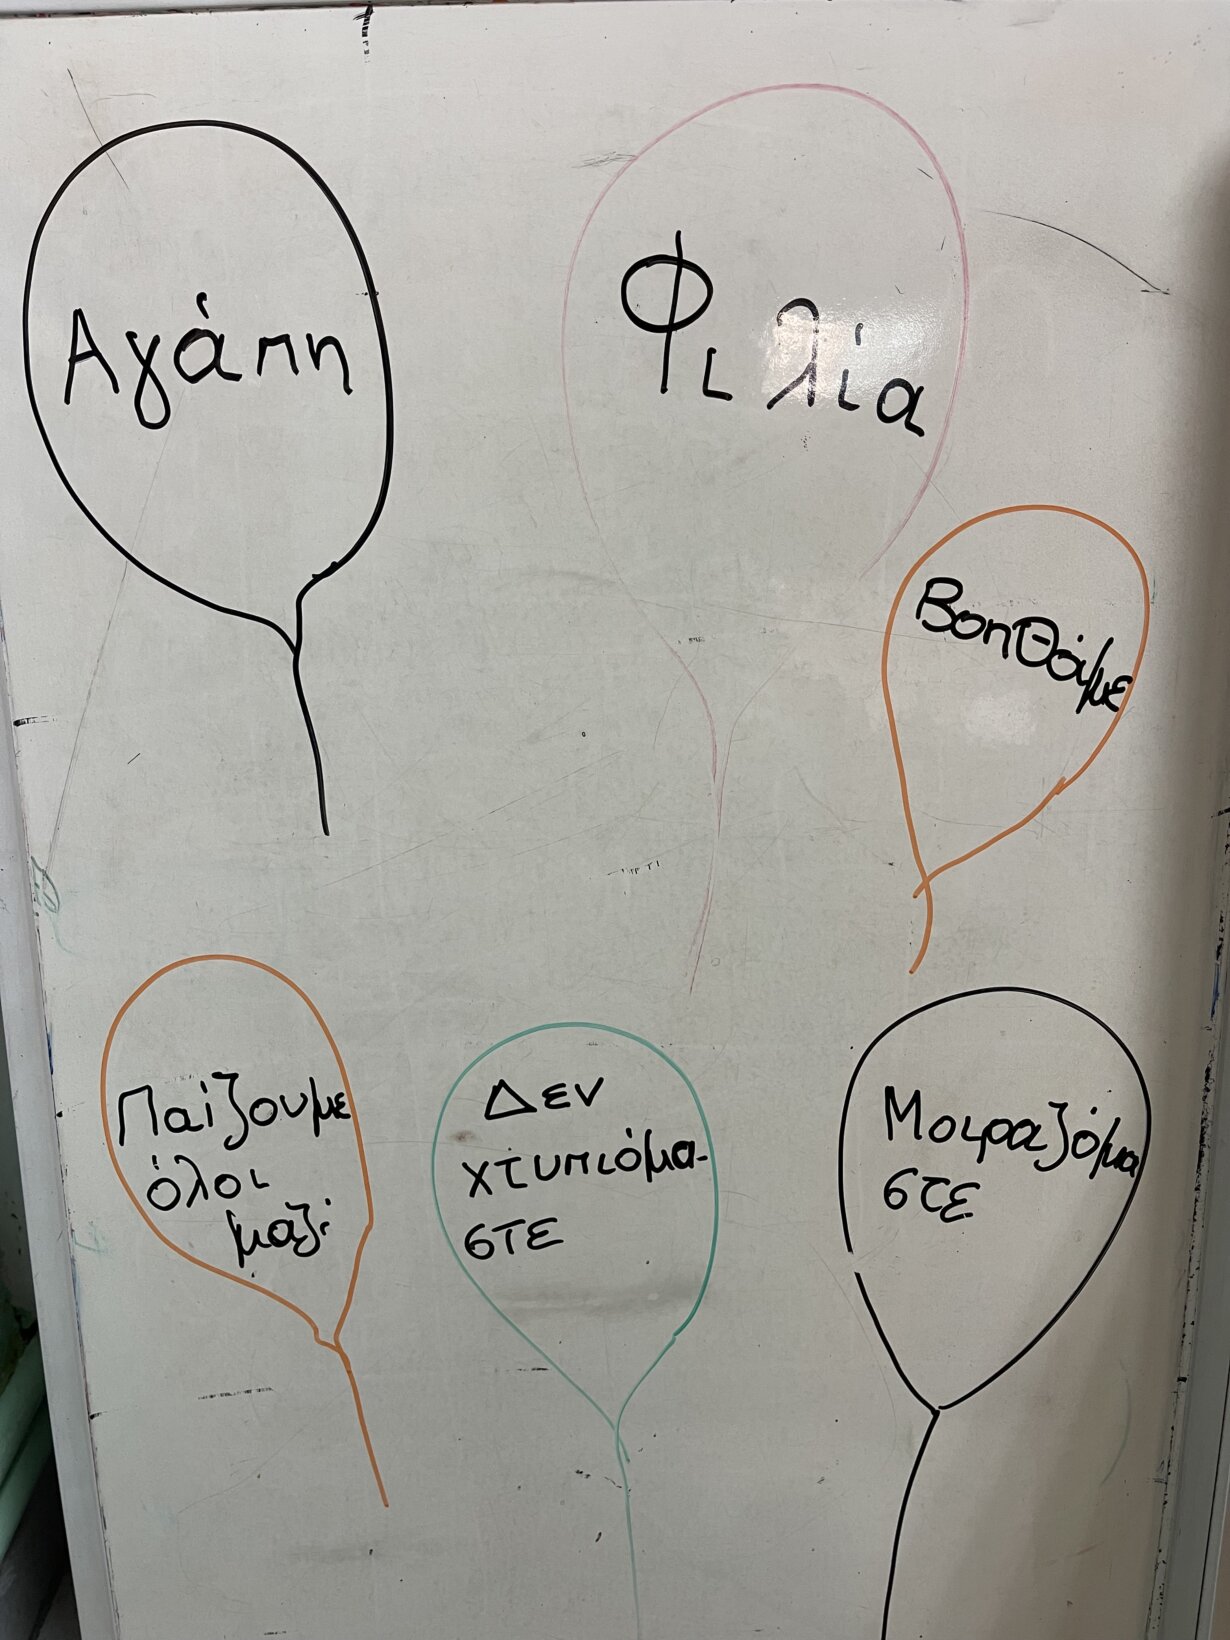 Αγάπη
Φιλία
Βοηθάμε
Παίζουμε
όλοι
μαζί
Δεν
χτυπιόμα-
στε
Μοιραζόμα
στε